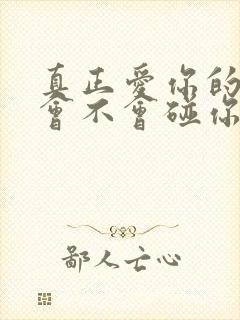 真正愛你的
會不會碰你
鄙人亡心